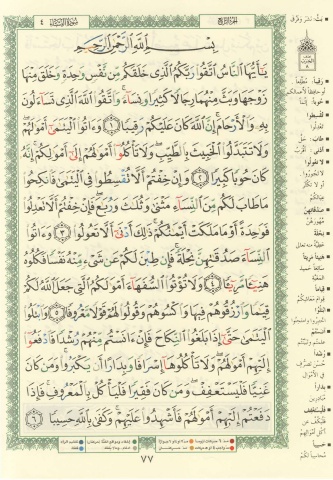 سورة النساء ٤
الجزء الرابع
بِسْمِ اللَّهِ الرَّحْمَٰنِ الرَّحِيمِ
يَا أَيُّهَا النَّاسُ اتَّقُوا رَبَّكُمُ الَّذِي خَلَقَكُم مِّن نَّفْسٍ وَاحِدَةٍ وَخَلَقَ مِنْهَا
زَوْجَهَا وَبَثَّ مِنْهُمَا رِجَالًا كَثِيرًا وَنِسَاءً وَاتَّقُوا اللَّهَ الَّذِي تَسَاءَلُونَ
بِهِ وَالْأَرْحَامَ إِنَّ اللَّهَ كَانَ عَلَيْكُمْ رَقِيبًا ١ وَآتُوا الْيَتَامَىٰ أَمْوَالَهُمْ
وَلَا تَتَبَدَّلُوا الْخَبِيثَ بِالطَّيِّبِ وَلَا تَأْكُلُوا أَمْوَالَهُمْ إِلَىٰ أَمْوَالِكُمْ إِنَّهُ
كَانَ حُوبًا كَبِيرًا ٢ وَإِنْ خِفْتُمْ أَلَّا تُقْسِطُوا فِي الْيَتَامَىٰ فَانكِحُوا
مَا طَابَ لَكُم مِّنَ النِّسَاءِ مَثْنَىٰ وَثُلَاثَ وَرُبَاعَ فَإِنْ خِفْتُمْ أَلَّا تَعْدِلُوا
فَوَاحِدَةً أَوْ مَا مَلَكَتْ أَيْمَانُكُمْ ذَٰلِكَ أَدْنَىٰ أَلَّا تَعُولُوا ٣ وَآتُوا
النِّسَاءَ صَدُقَاتِهِنَّ نِحْلَةً فَإِن طِبْنَ لَكُمْ عَن شَيْءٍ مِّنْهُ نَفْسًا فَكُلُوهُ
هَنِيئًا مَّرِيئًا ٤ وَلَا تُؤْتُوا السُّفَهَاءَ أَمْوَالَكُمُ الَّتِي جَعَلَ اللَّهُ لَكُمْ
قِيَامًا وَارْزُقُوهُمْ فِيهَا وَاكْسُوهُمْ وَقُولُوا لَهُمْ قَوْلًا مَّعْرُوفًا ٥ وَابْتَلُوا
الْيَتَامَىٰ حَتَّىٰ إِذَا بَلَغُوا النِّكَاحَ فَإِنْ آنَسْتُم مِّنْهُمْ رُشْدًا فَادْفَعُوا
إِلَيْهِمْ أَمْوَالَهُمْ وَلَا تَأْكُلُوهَا إِسْرَافًا وَبِدَارًا أَن يَكْبَرُوا وَمَن كَانَ
غَنِيًّا فَلْيَسْتَعْفِفْ وَمَن كَانَ فَقِيرًا فَلْيَأْكُلْ بِالْمَعْرُوفِ فَإِذَا
دَفَعْتُمْ إِلَيْهِمْ أَمْوَالَهُمْ فَأَشْهِدُوا عَلَيْهِمْ وَكَفَىٰ بِاللَّهِ حَسِيبًا ٦
٧٧